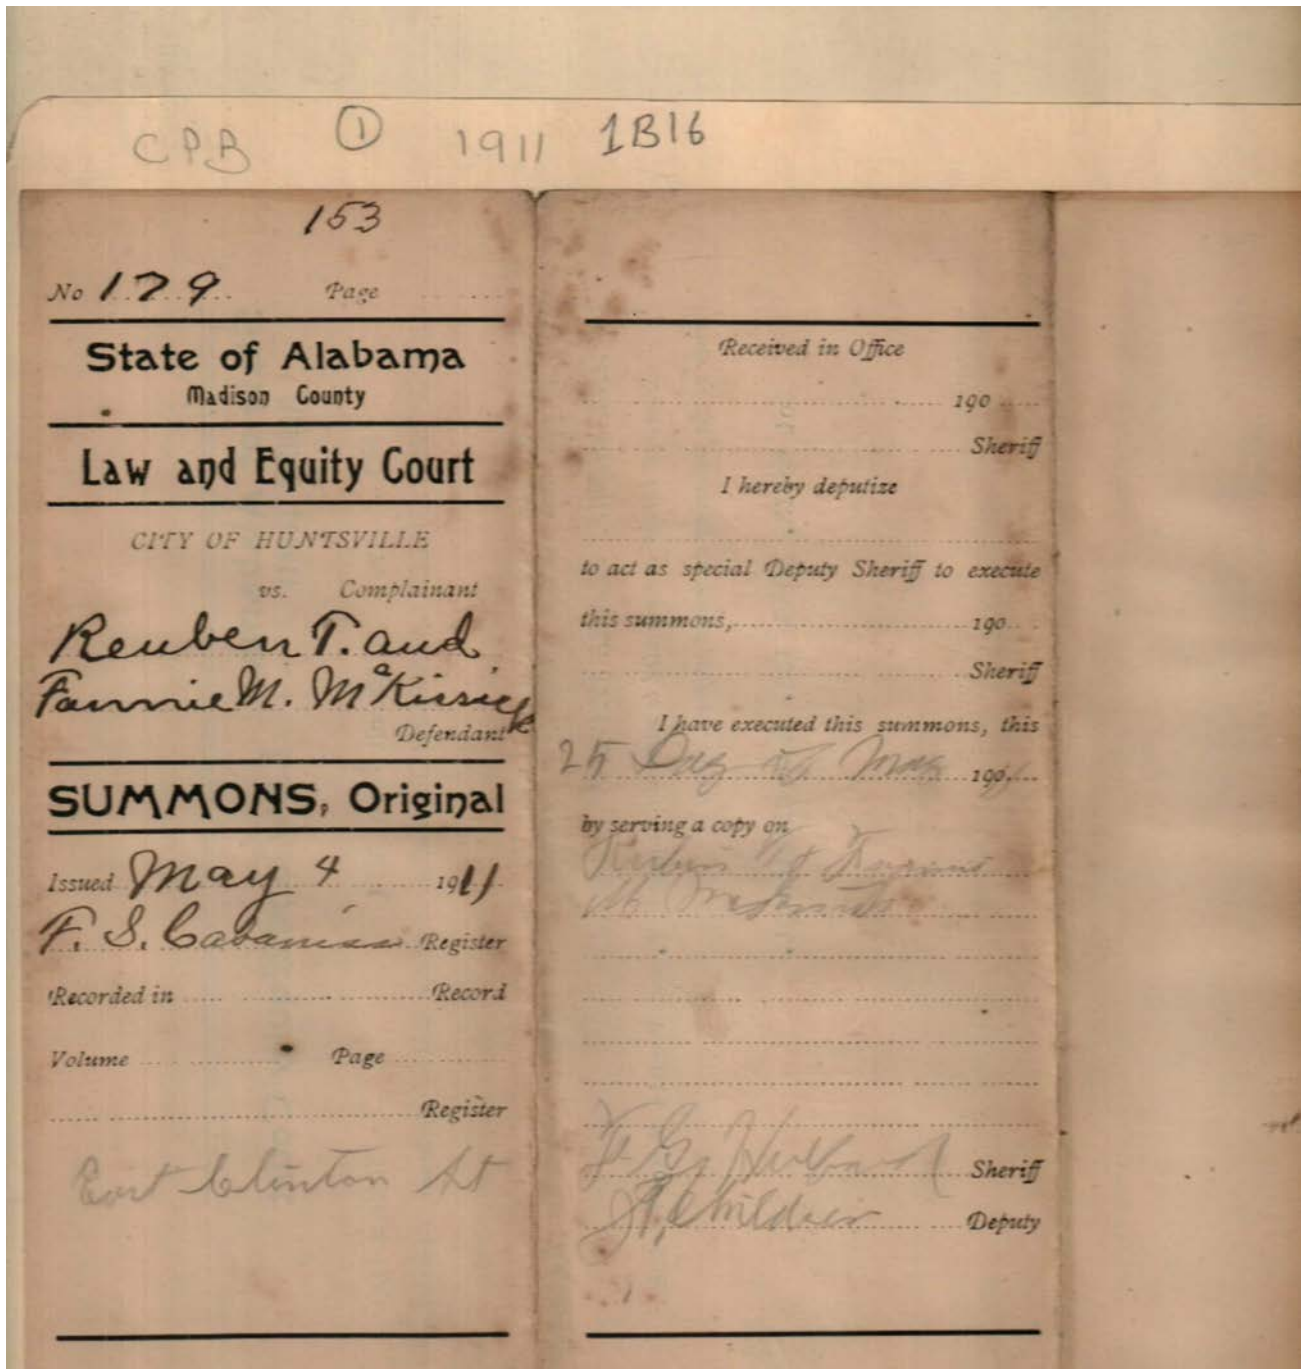 CPB ① 1911 1B16
153
No 179 Page
State of Alabama
Madison County
Law and Equity Court
CITY OF HUNTSVILLE
vs. Complainant
Reuben T. and
Fannie M. McKissick
Defendant
SUMMONS, Original
Issued May 4 1911
F. S. Cabaniss Register
Recorded in Record
Volume Page
Register
East Clinton St
Received in Office
190
Sheriff
I hereby deputize
to act as special Deputy Sheriff to execute
this summons, 190
Sheriff
I have executed this summons, this
25 Day of May 190
by serving a copy on
Sheriff
Deputy